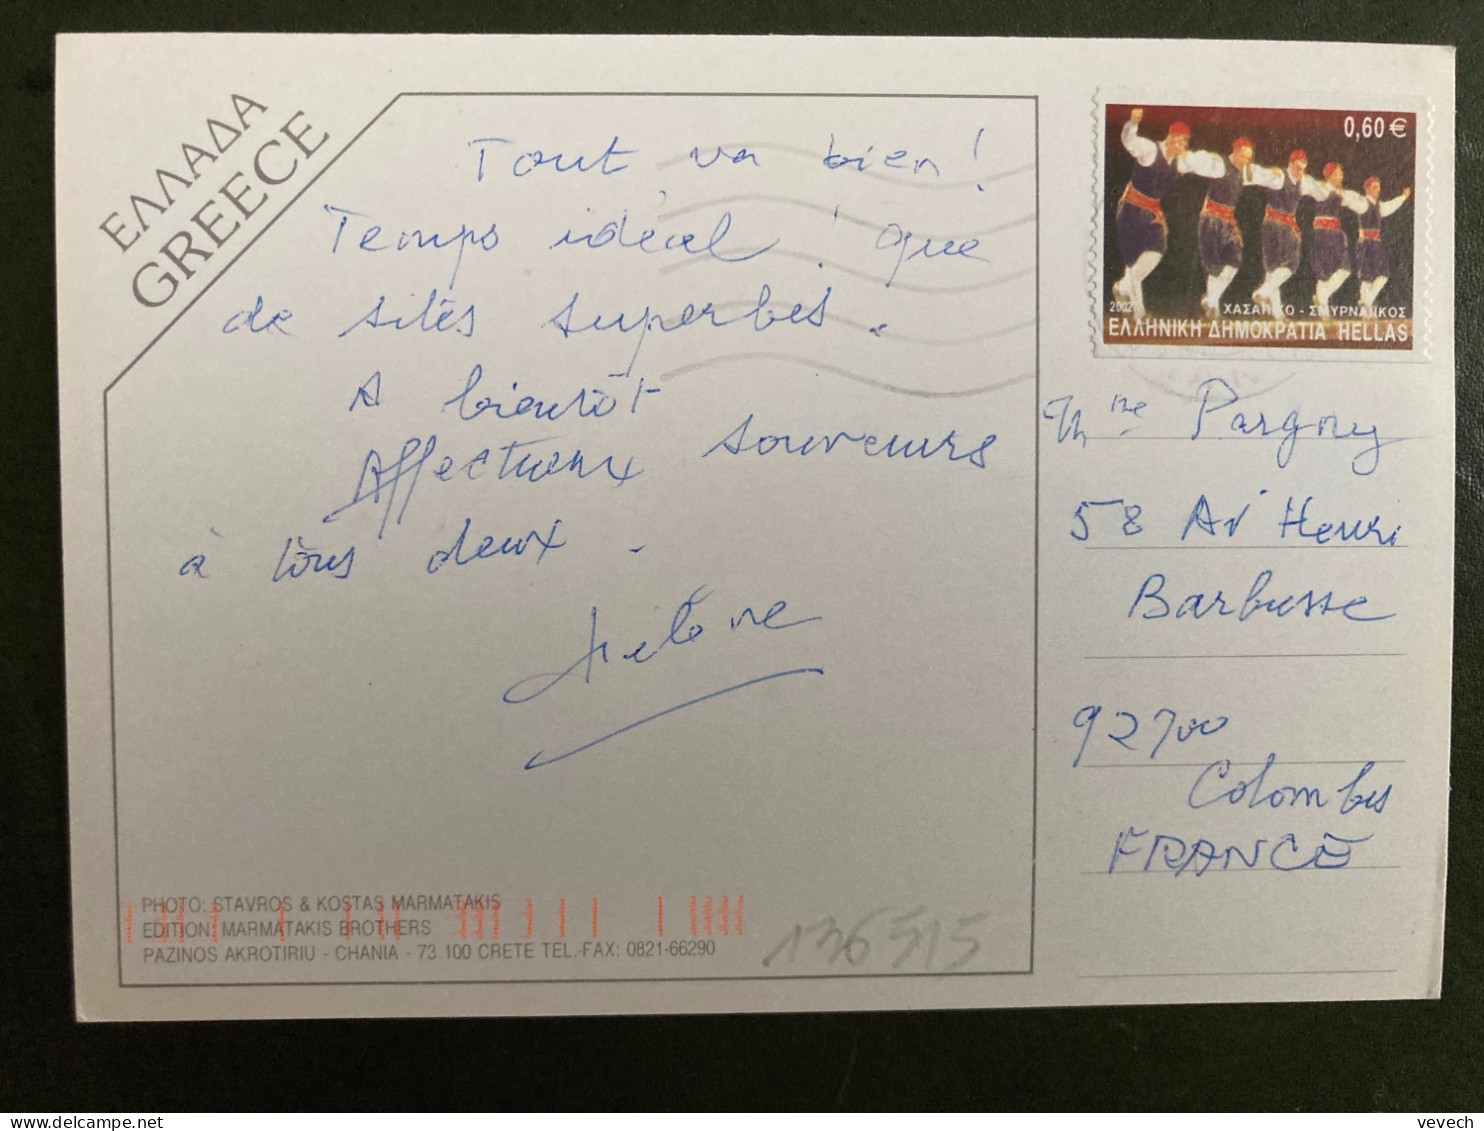 ΕΛΛΑΔΑ
GREECE
Tout va bien !
Temps idéal ! que
de sites superbes.
A bientôt
Affectueux souvenirs
à tous deux.
Hélène
0,60 €
2002
ΧΑΣΑΠΙΚΟ - ΣΜΥΡΝΑΙΙΚΟΣ
ΕΛΛΗΝΙΚΗ ΔΗΜΟΚΡΑΤΙΑ HELLAS
Mme Pargny
58 Av Henri
Barbusse
92700
Colombes
FRANCE
PHOTO: STAVROS & KOSTAS MARMATAKIS
EDITION: MARMATAKIS BROTHERS
PAZINOS AKROTIRIU - CHANIA - 73 100 CRETE TEL.-FAX: 0821-66290
136515
vevech